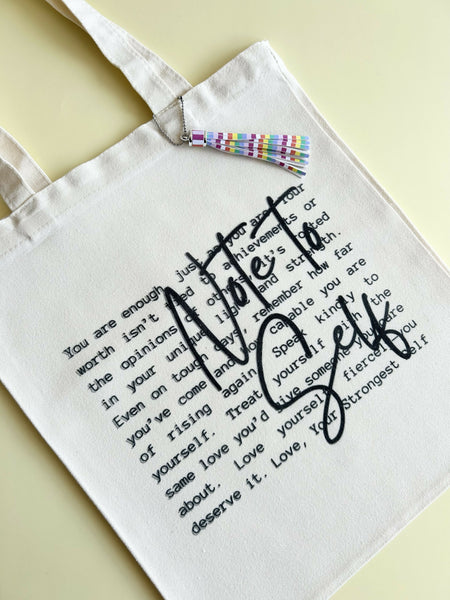 Note To
Self
You are enough, just as you are. Your
worth isn't tied to achievements or
the opinions of rooted
in your unique light and strength.
Even on tough days, remember how far
you've come and how capable you are
of rising again. Speak kindly to
yourself. Treat yourself with the
same love you'd give someone you care
about. Love yourself fiercely you
deserve it. Love, Your Strongest Self